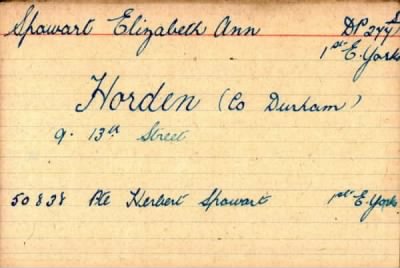 Spowart Elizabeth Ann DP 274
1st E. Yorks
Horden (Co Durham)
9. 13th Street
50838 Pte Herbert Spowart 1st E. Yorks